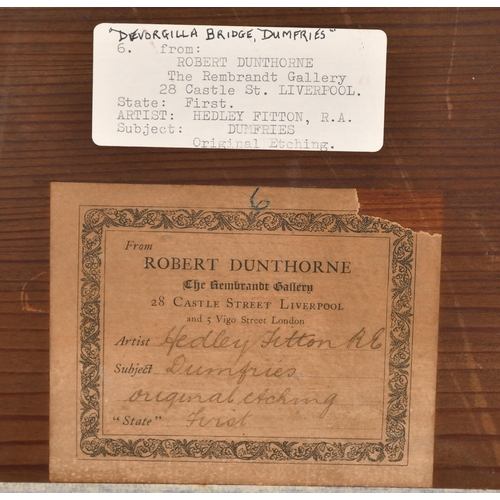 "DEVORGILLA BRIDGE, DUMFRIES"
6. from:
ROBERT DUNTHORNE
The Rembrandt Gallery
28 Castle St. LIVERPOOL.
State: First.
ARTIST: HEDLEY FITTON, R.A.
Subject: DUMFRIES
Original Etching.
6
From
ROBERT DUNTHORNE
The Rembrandt Gallery
28 CASTLE STREET LIVERPOOL
and 5 VIGO STREET LONDON
Artist Hedley Fitton RE
Subject Dumfries
original etching
"State" First